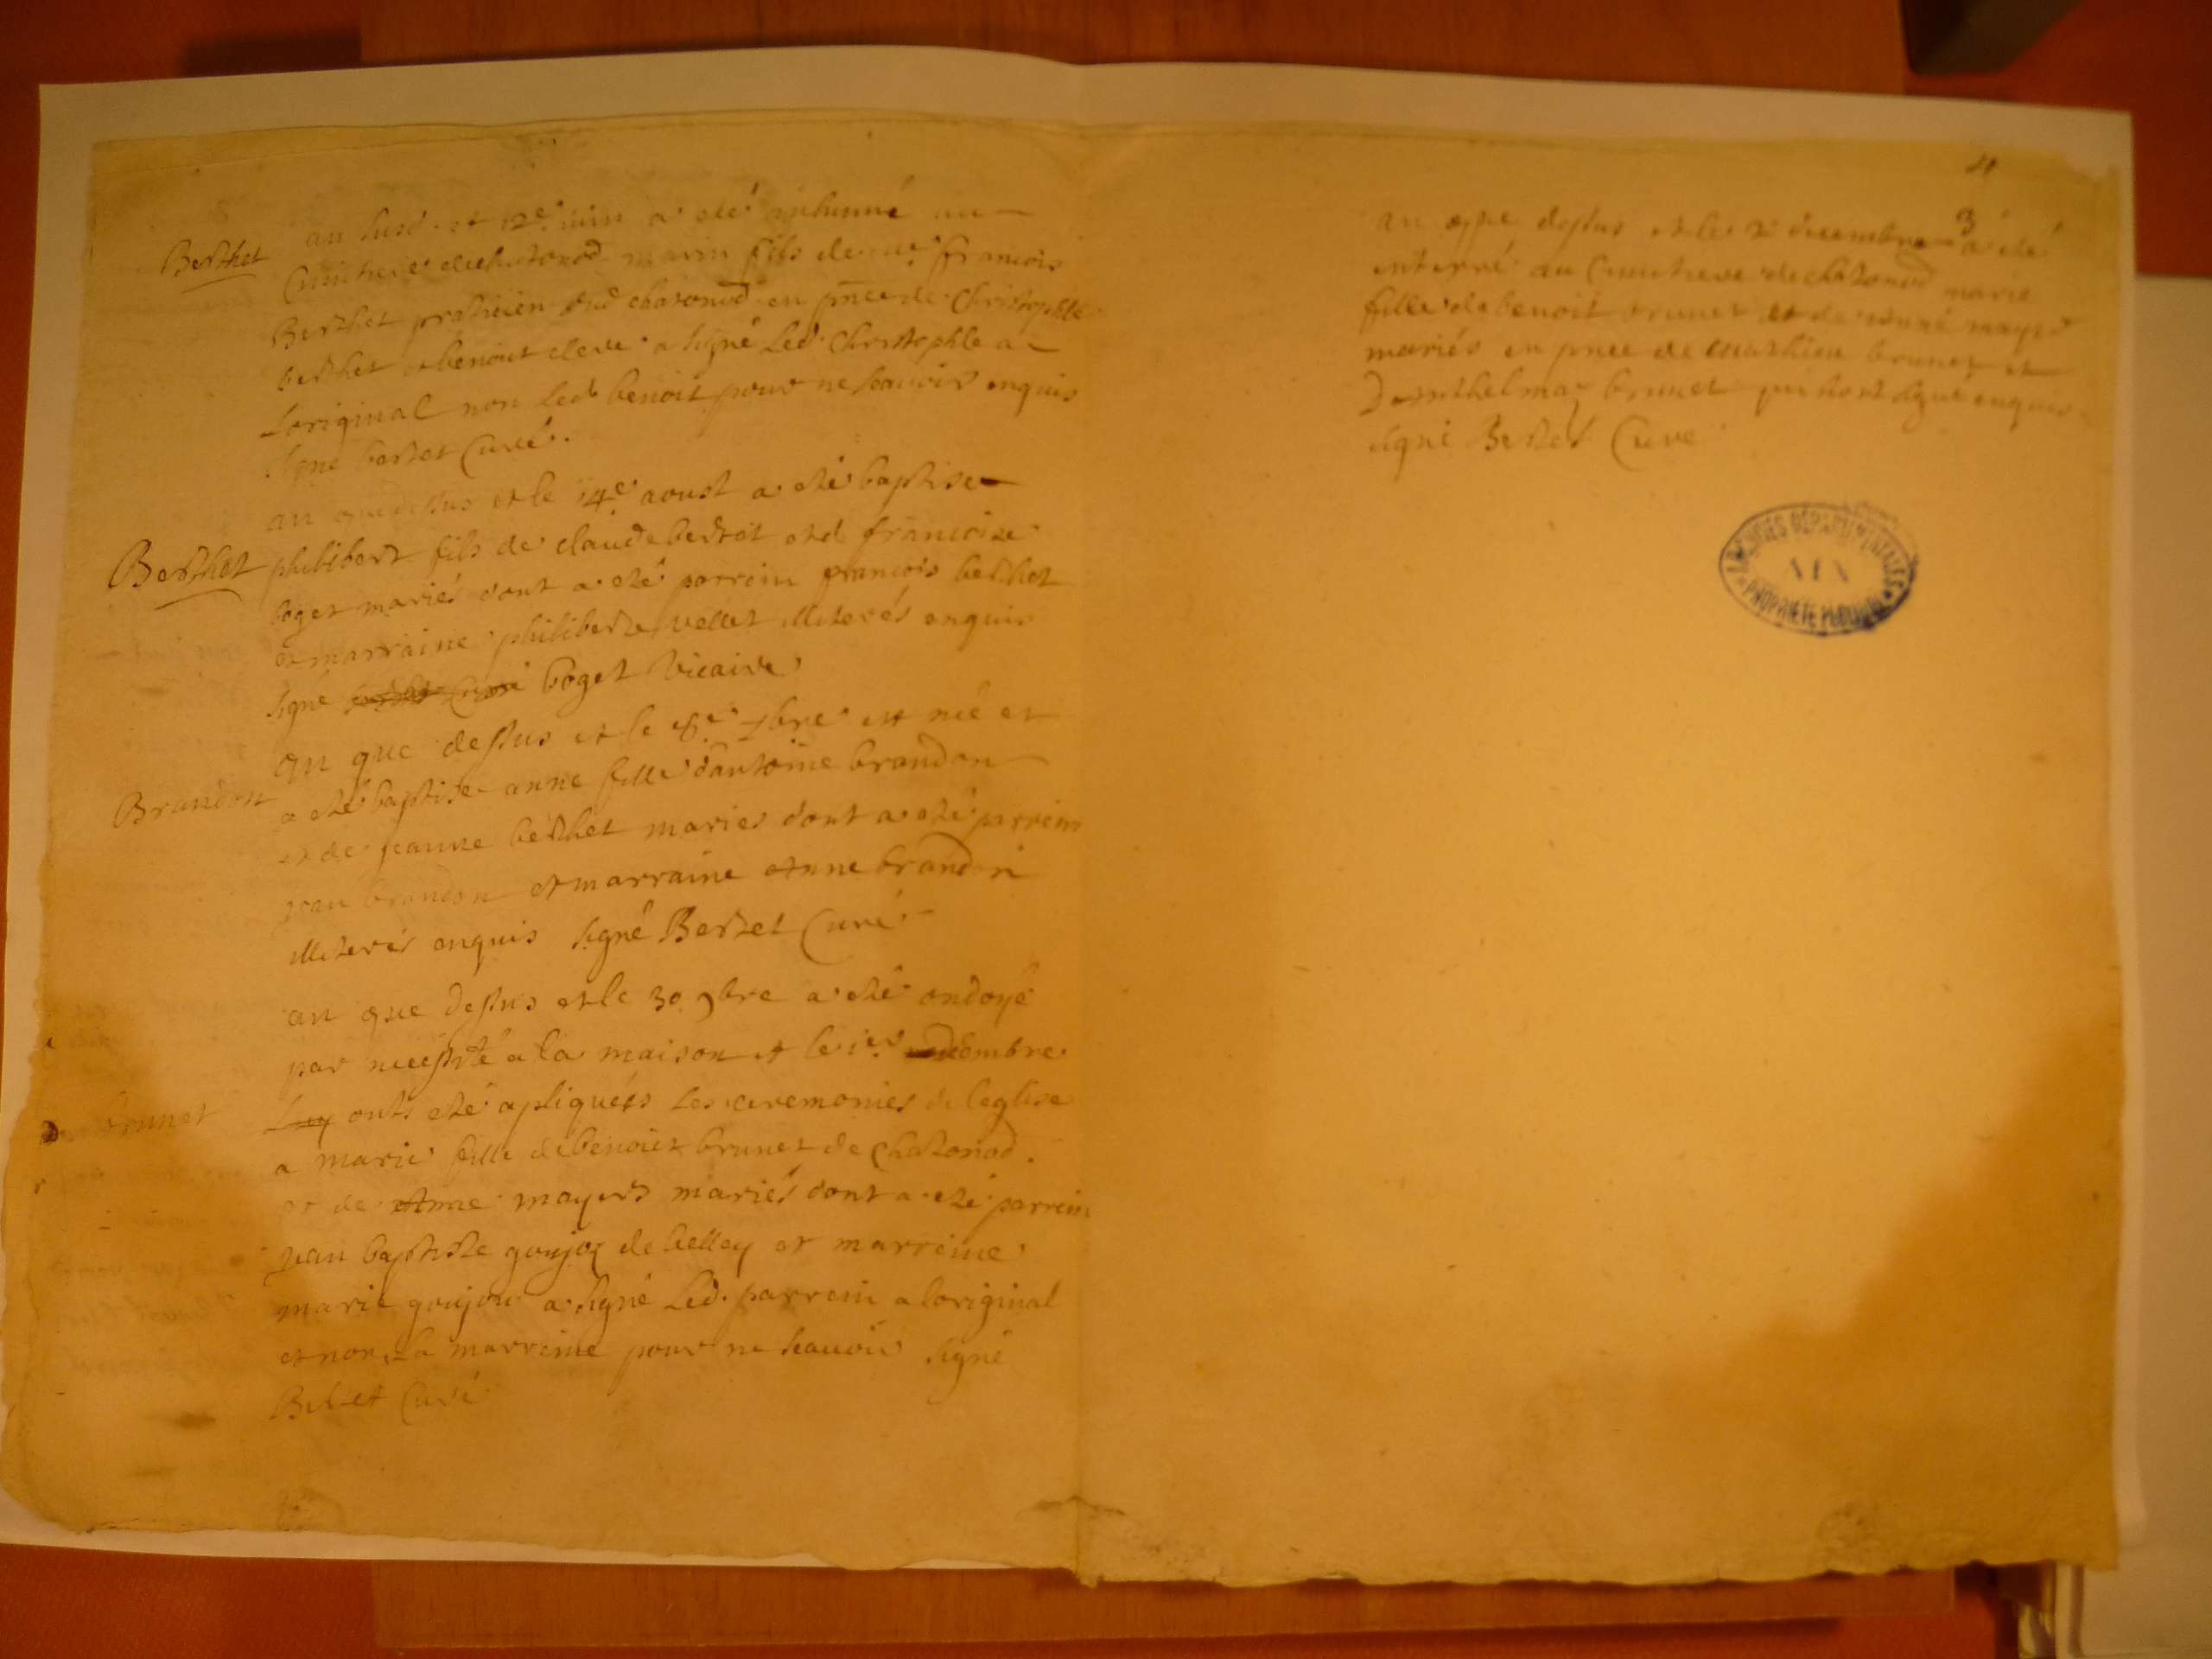 Berthet
an susd. et 12e. juin a eté inhumé au
Cimitiere de chatonod marin fils de me. francois
Berthet praticien dud chatonod en pnce de Christophle
berthet et benoit cleve a signé Led. Christophle a
Loriginal non Led. benoit pour ne scavoir enquis
signe bertet Curé.
an que dessus et le 14e. aoust a eté baptise
Berthet
philibert fils de claude bertet et d francoise
boget mariés dont a eté parrein francois berthet
et marraine philiberte vellet illiterés enquis
signé boget Vicaire
an que dessus et le 8e. 7bre est née et
Brandon
a eté baptisée anne fille dantoine brandon
et de jeanne berthet mariés dont a eté parrein
jean brandon et marraine anne brandon
illiterés enquis signé Bertet Curé
an que dessus et le 30 9bre a eté ondoyé
par necessité a la maison et le 1er decembre
brunet
Luy onts eté apliquées Les ceremonies de leglise
a marie fille de benoit brunet de chatonod.
et de Anne mayers mariés dont a eté parrein
jean baptiste goujoz de belley et marreine
marie goujou a signé Led. parrein a loriginal
et non La marreine pour ne scavoir signé
Bertet Curé
4
an que dessus et le 3 decembre a eté
enterré au Cimitiere de chatonod marie
fille de benoit brunet et de anne
mariés en pnce de mathieu brunet et
brunet qui nont signé enquis
signé Bertet Curé
ARCHIVES DÉPARTEMENTALES
AIN
PROPRIÉTÉ PUBLIQUE